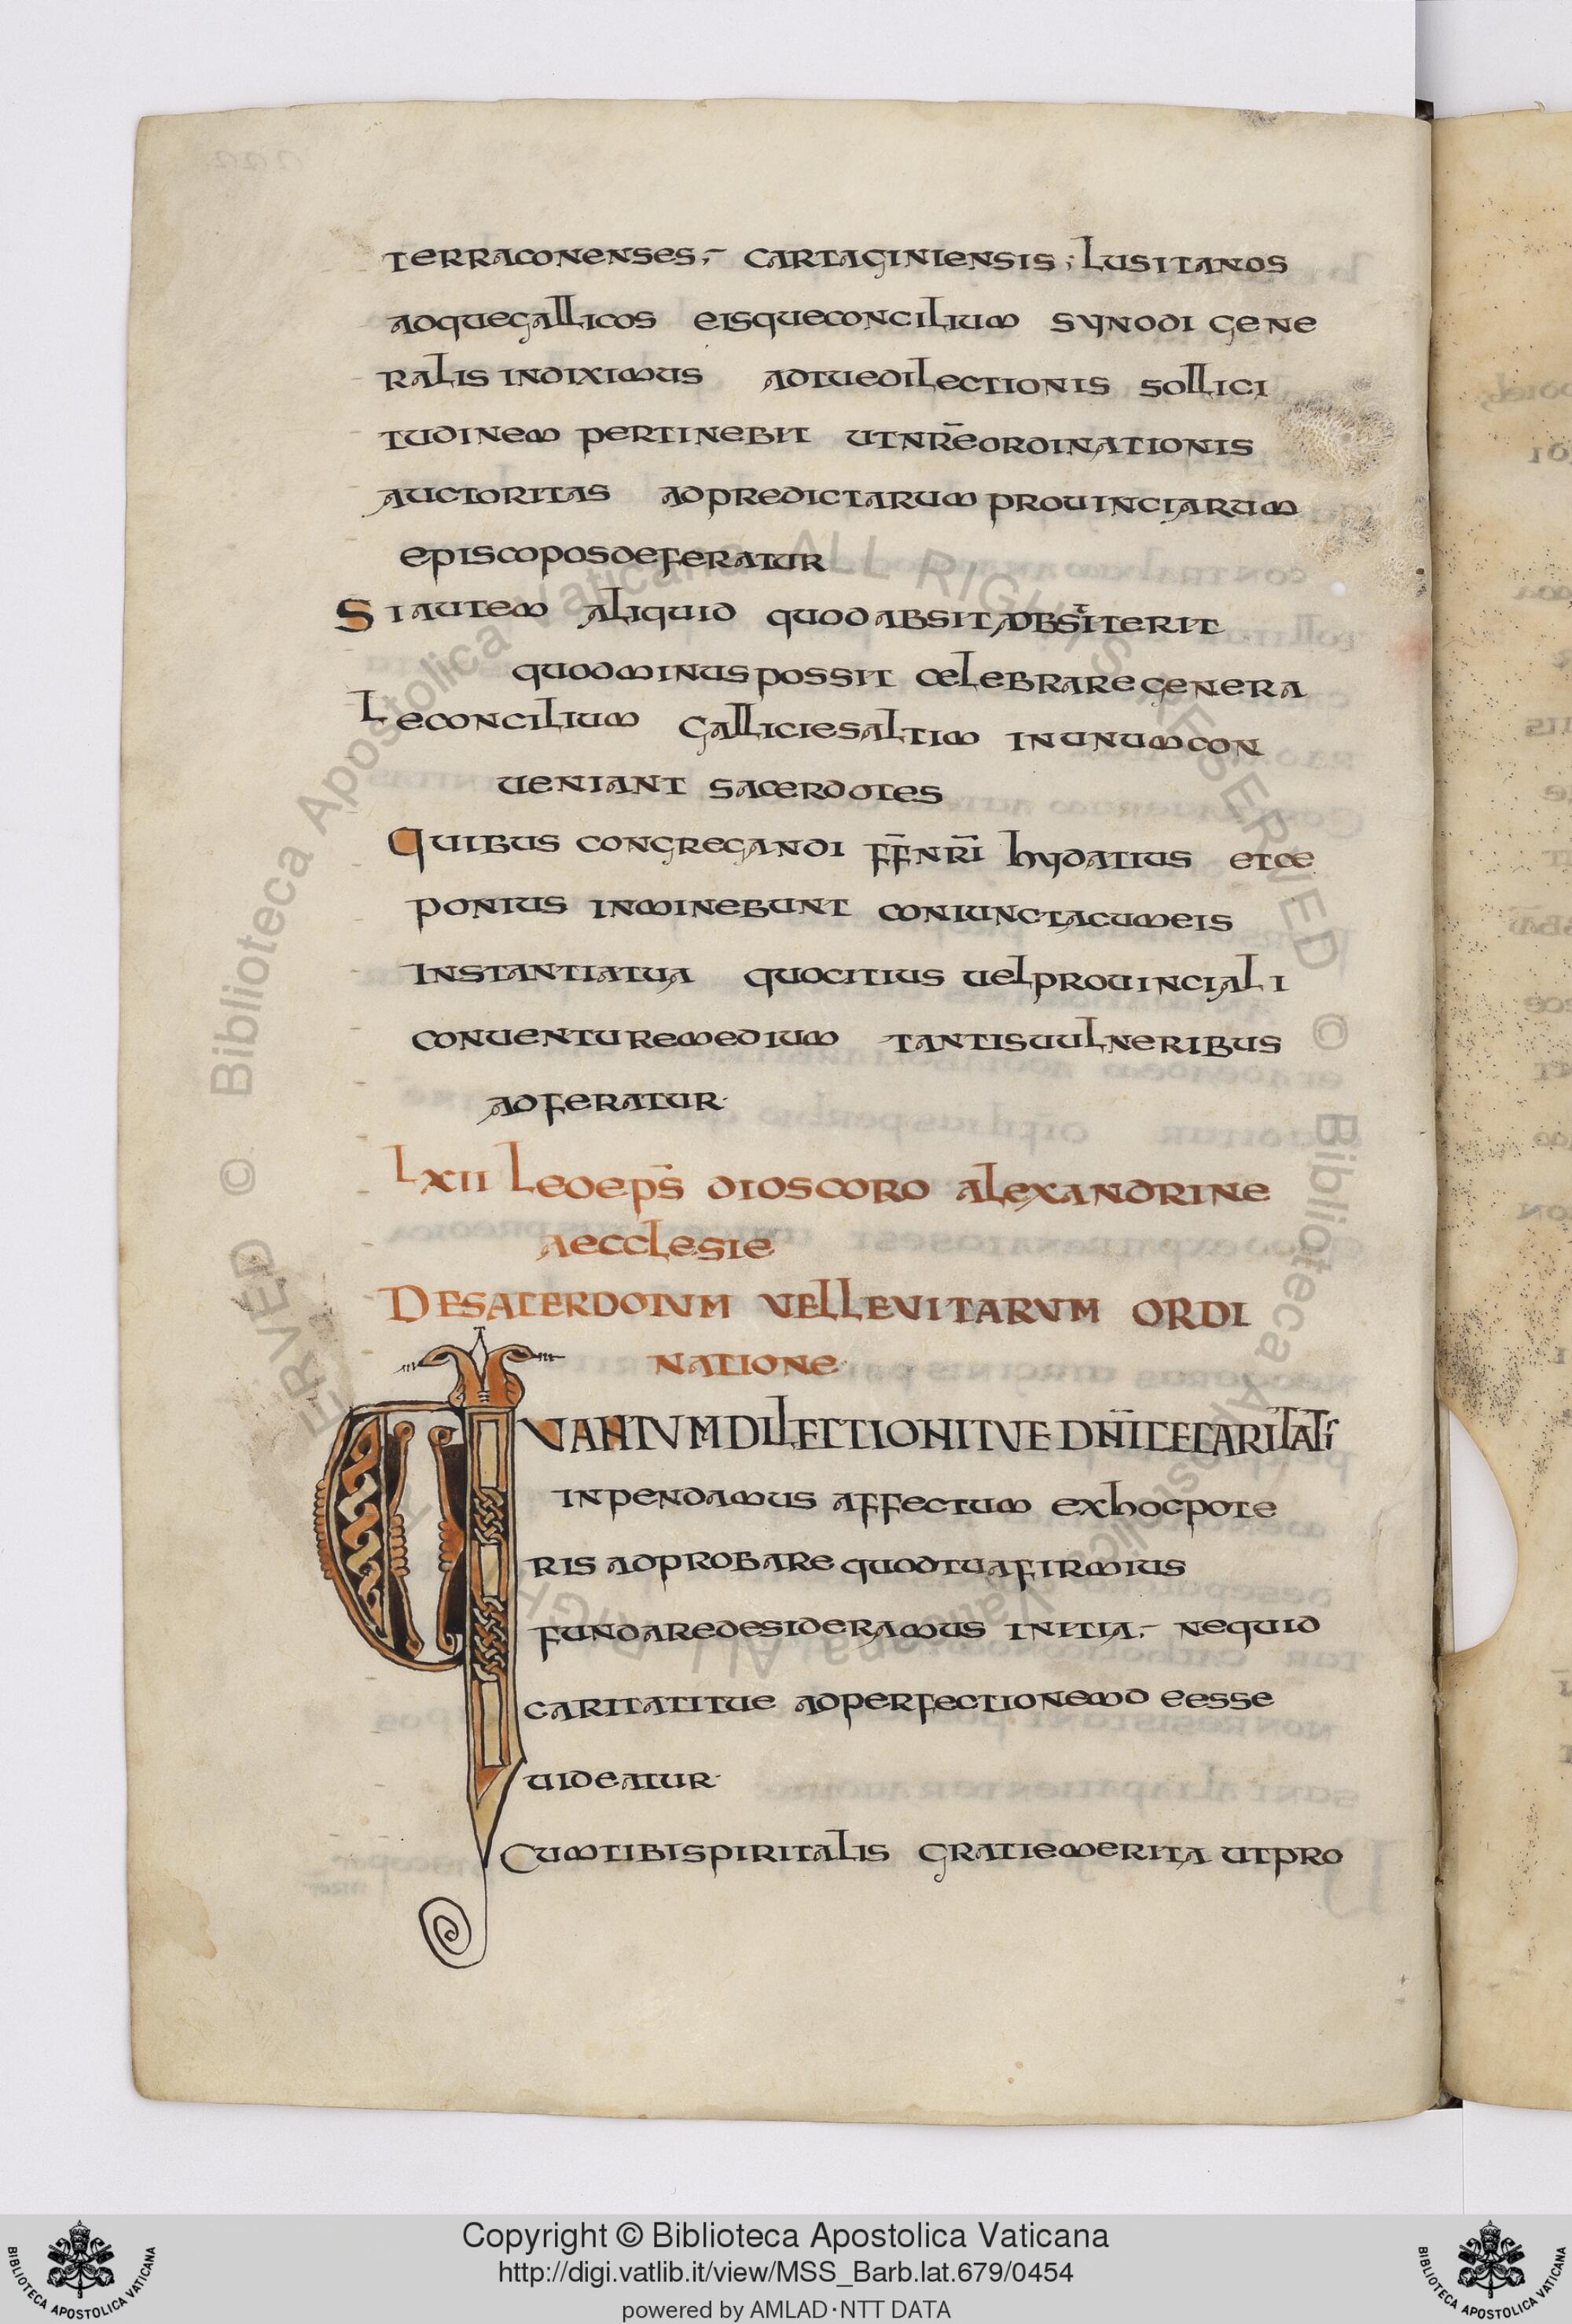 terraconenses;– cartaginiensis; lusitanos
adque gallicos eisque concilium synodi gene
ralis indiximus ad tue dilectionis sollici
tudinem pertinebit ut nr̄e ordinationis
auctoritas ad predictarum prouinciarum
episcopos deferatur
Si autem aliquid quod absit, obstiterit
quominus possit celebrare genera
le concilium gallicie saltim in unum con
ueniant sacerdotes
Quibus congregandi f̄f̄ nr̄i hydatius et ce
ponius inminebunt coniuncta cum eis
instantia tua quo citius uel prouinciali
conuentu remedium tantis uulneribus
adferatur·
LXII Leo ep̄s dioscoro alexandrine
aecclesie
DE SACERDOTUM VEL LEVITARVM ORDI
natione
QVANTVM DILECTIONI TVE DN̄ICE CARITATIS
inpendamus affectum ex hoc pote
ris adprobare quod tua firmius
fundare desideramus initia;– ne quid
caritati tue ad perfectionem deesse
uideatur·
Cum tibi spiritalis gratie merita ut pro
Copyright © Biblioteca Apostolica Vaticana
http://digi.vatlib.it/view/MSS_Barb.lat.679/0454
powered by AMLAD·NTT DATA
BIBLIOTECA APOSTOLICA VATICANA
BIBLIOTECA APOSTOLICA VATICANA
© Biblioteca Apostolica Vaticana ALL RIGHTS RESERVED © Biblioteca Apostolica Vaticana ALL RIGHTS RESERVED